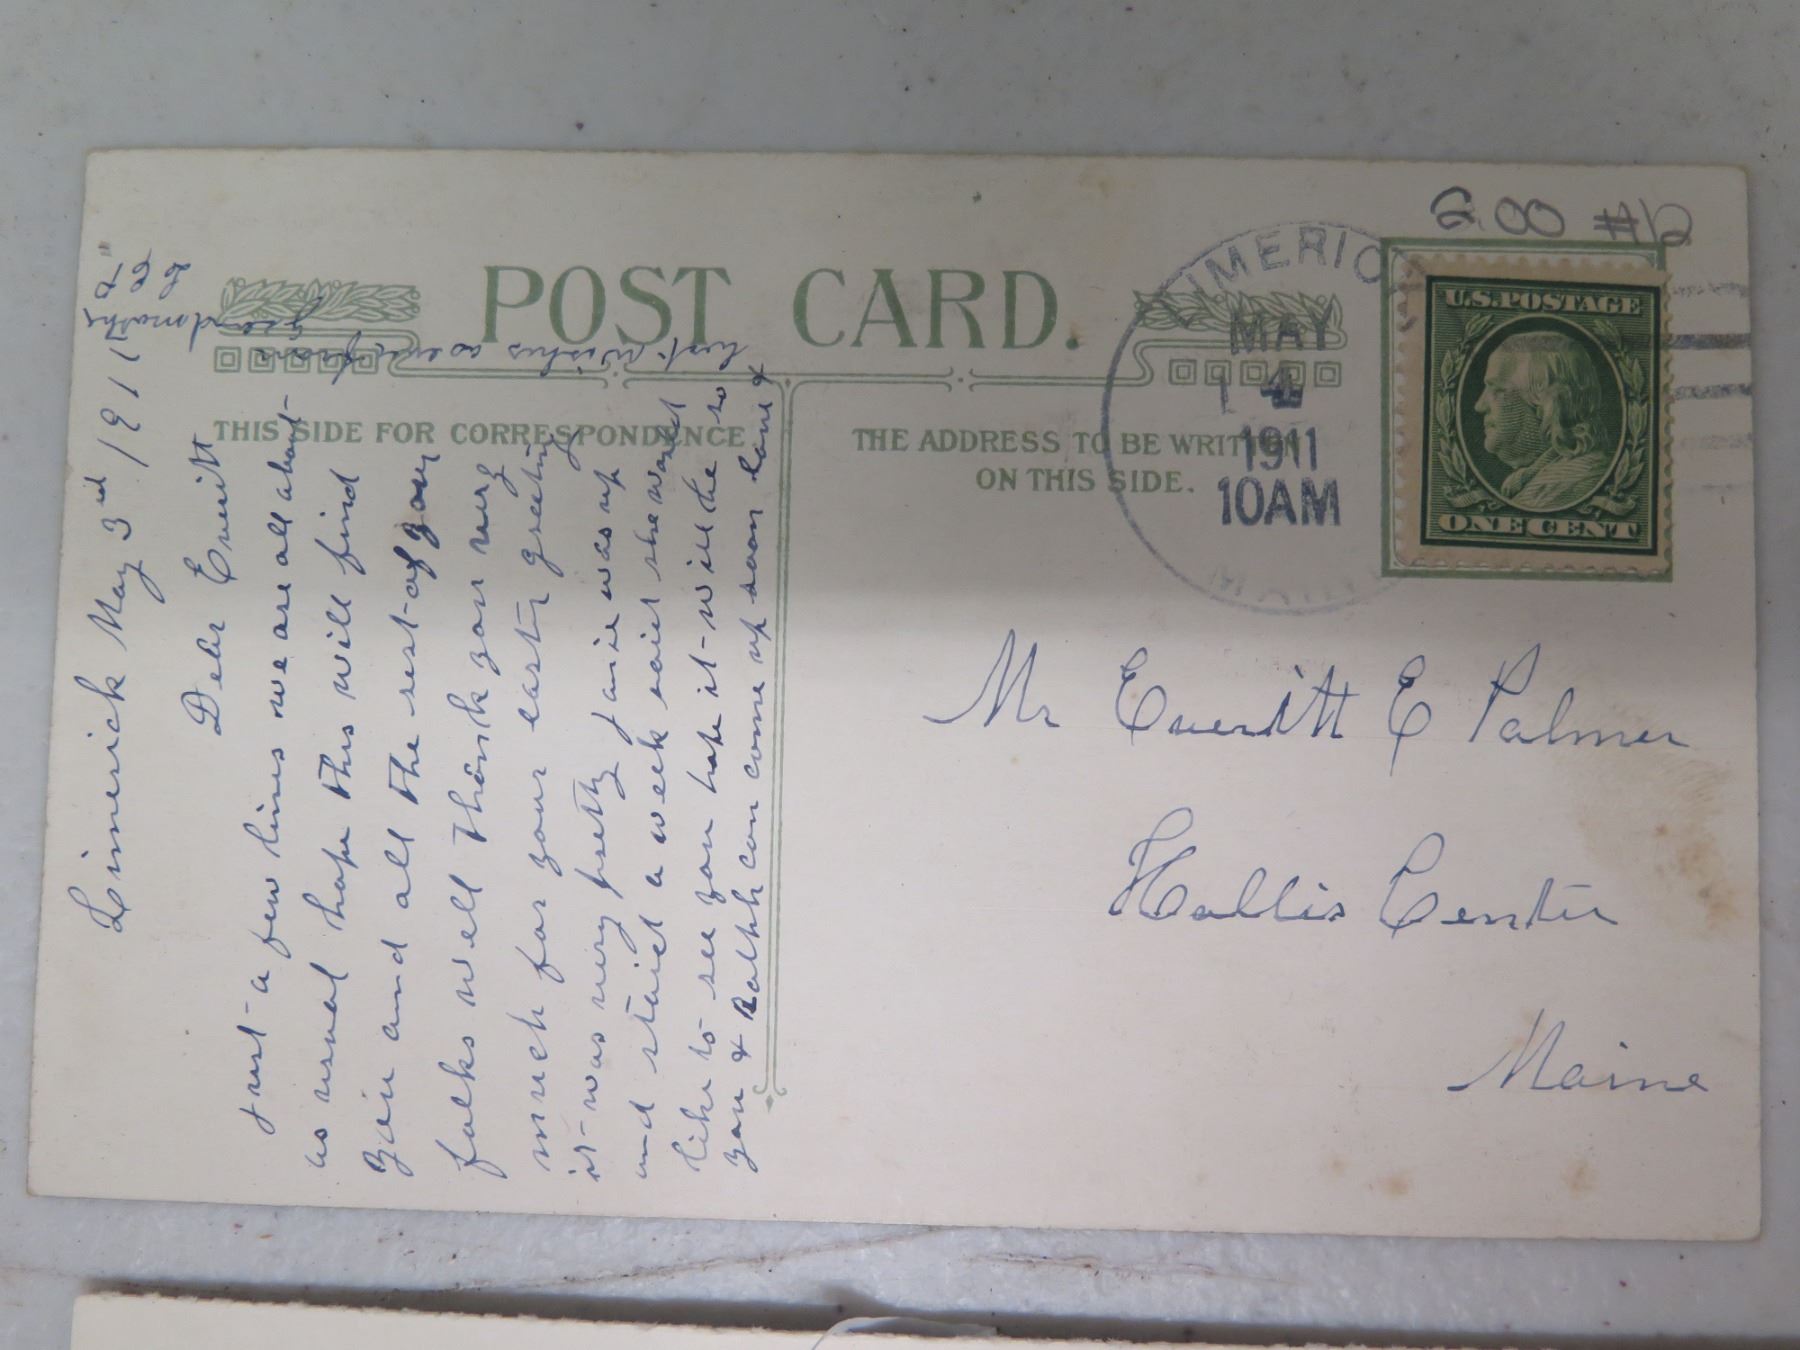 2.00 #12
POST CARD.
THIS SIDE FOR CORRESPONDENCE
THE ADDRESS TO BE WRITTEN
ON THIS SIDE.
LIMERICK
MAY
4
1911
10AM
U.S. POSTAGE
ONE CENT
Limerick May 3rd 1911
Dear Everitt
Just a few lines we are all about
as usual hope this will find
you and all the rest of your
folks well thank you very
much for your easter greeting
it was very pretty Janie was up
and staid a week said she would
like to see you hope it will be so
you & Ralph can come up soon love &
best wishes from
Grandma
Mr Everitt E Palmer
Hollis Center
Maine